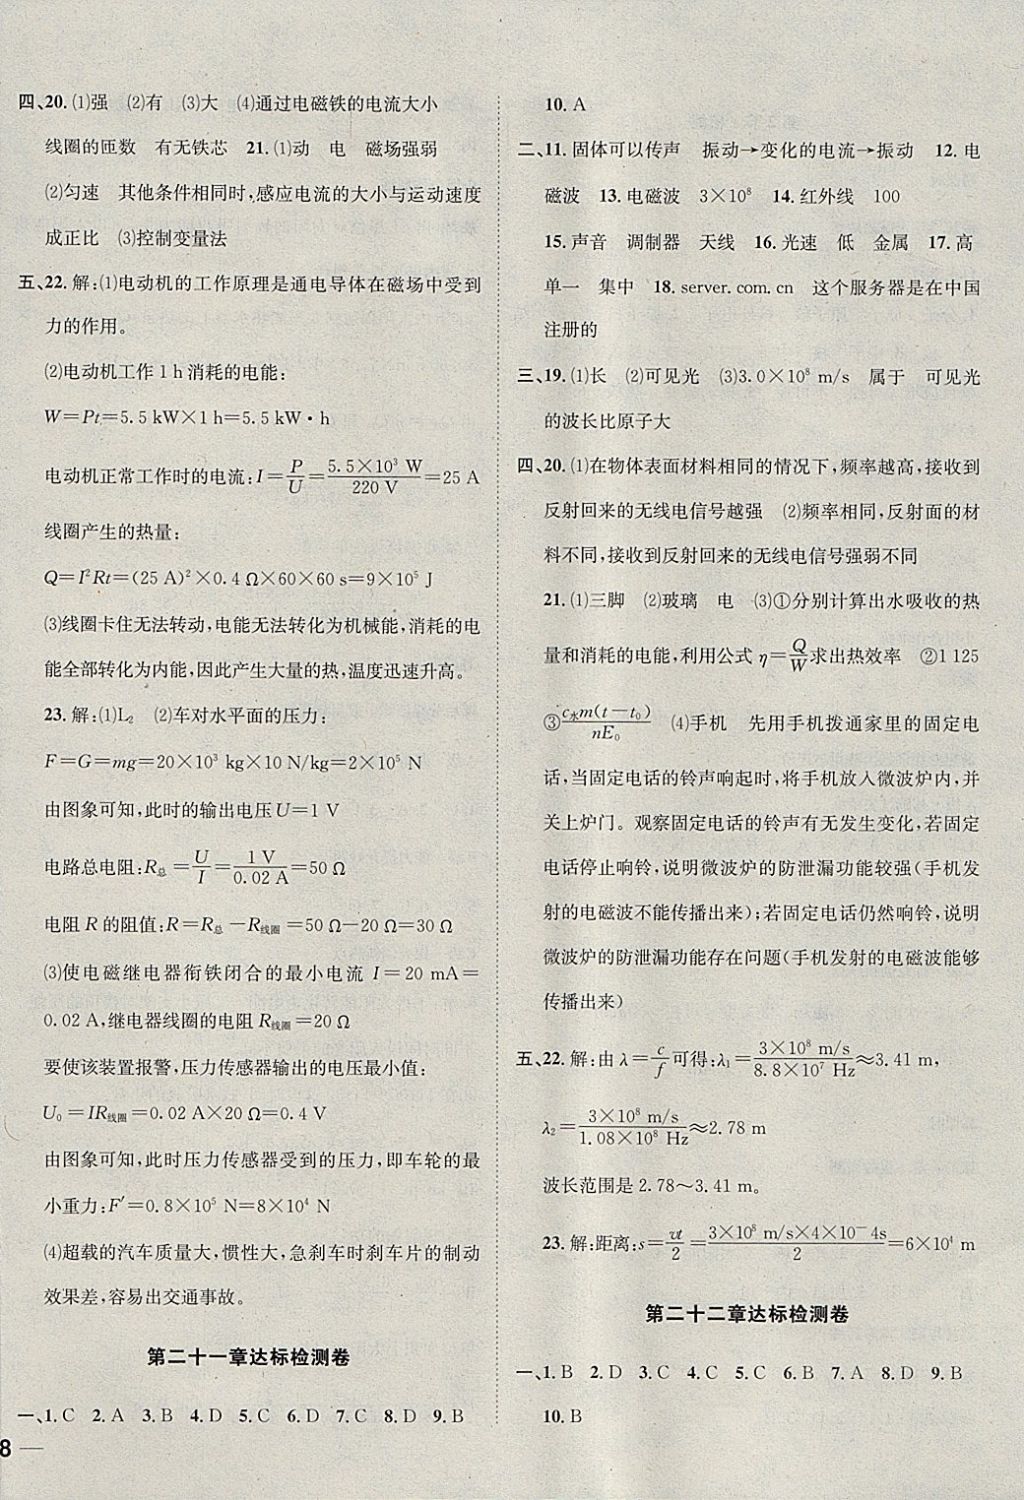 四、20. (1)强　(2)有　(3)大　(4)通过电磁铁的电流大小
线圈的匝数　有无铁芯　21. (1)动　电　磁场强弱
(2)匀速　其他条件相同时,感应电流的大小与运动速度
成正比　(3)控制变量法
五、22. 解:(1)电动机的工作原理是通电导体在磁场中受到
力的作用。
(2)电动机工作 1 h 消耗的电能:
W=Pt=5.5 kW×1 h=5.5 kW·h
电动机正常工作时的电流:I=P/U=5.5×10³ W/220 V=25 A
线圈产生的热量:
Q=I²Rt=(25 A)²×0.4 Ω×60×60 s=9×10⁵ J
(3)线圈卡住无法转动,电能无法转化为机械能,消耗的电
能全部转化为内能,因此产生大量的热,温度迅速升高。
23. 解:(1)L₂　(2)车对水平面的压力:
F=G=mg=20×10³ kg×10 N/kg=2×10⁵ N
由图象可知,此时的输出电压U=1 V
电路总电阻:R总=U/I=1 V/0.02 A=50 Ω
电阻 R 的阻值:R=R总-R线圈=50 Ω-20 Ω=30 Ω
(3)使电磁继电器衔铁闭合的最小电流 I=20 mA=
0.02 A,继电器线圈的电阻 R线圈=20 Ω
要使该装置报警,压力传感器输出的电压最小值:
U₀=IR线圈=0.02 A×20 Ω=0.4 V
由图象可知,此时压力传感器受到的压力,即车轮的最
小重力:F′=0.8×10⁵ N=8×10⁴ N
(4)超载的汽车质量大,惯性大,急刹车时刹车片的制动
效果差,容易出交通事故。
第二十一章达标检测卷
一、1. C　2. A　3. B　4. D　5. C　6. D　7. C　8. D　9. B
8
10. A
二、11. 固体可以传声　振动→变化的电流→振动　12. 电
磁波　13. 电磁波　3×10⁸　14. 红外线　100
15. 声音　调制器　天线　16. 光速　低　金属　17. 高
单一　集中　18. server. com. cn　这个服务器是在中国
注册的
三、19. (1)长　(2)可见光　(3)3.0×10⁸ m/s　属于　可见光
的波长比原子大
四、20. (1)在物体表面材料相同的情况下,频率越高,接收到
反射回来的无线电信号越强　(2)频率相同,反射面的材
料不同,接收到反射回来的无线电信号强弱不同
21. (1)三脚　(2)玻璃　电　(3)①分别计算出水吸收的热
量和消耗的电能,利用公式 η=Q/W求出热效率　②1 125
③c水m(t-t₀)/nE₀　(4)手机　先用手机拨通家里的固定电
话,当固定电话的铃声响起时,将手机放入微波炉内,并
关上炉门。观察固定电话的铃声有无发生变化,若固定
电话停止响铃,说明微波炉的防泄漏功能较强(手机发
射的电磁波不能传播出来);若固定电话仍然响铃,说明
微波炉的防泄漏功能存在问题(手机发射的电磁波能够
传播出来)
五、22. 解:由 λ=c/f可得:λ₁=3×10⁸ m/s/8.8×10⁷ Hz≈3.41 m,
λ₂=3×10⁸ m/s/1.08×10⁸ Hz≈2.78 m
波长范围是 2.78～3.41 m。
23. 解:距离:s=vt/2=3×10⁸ m/s×4×10⁻4s/2=6×10⁴ m
第二十二章达标检测卷
一、1. B　2. D　3. C　4. C　5. C　6. B　7. A　8. D　9. D
10. B